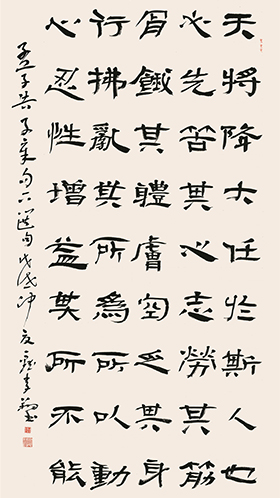 天將降大任於斯人也
必先苦其心志勞其筋
骨餓其體膚空乏其身
行拂亂其所為所以動
心忍性增益其所不能
孟子告子章句下選句戊戌